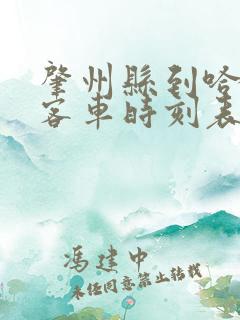 肇州縣到哈
客車時刻表
馮建中
未經同意禁止轉載